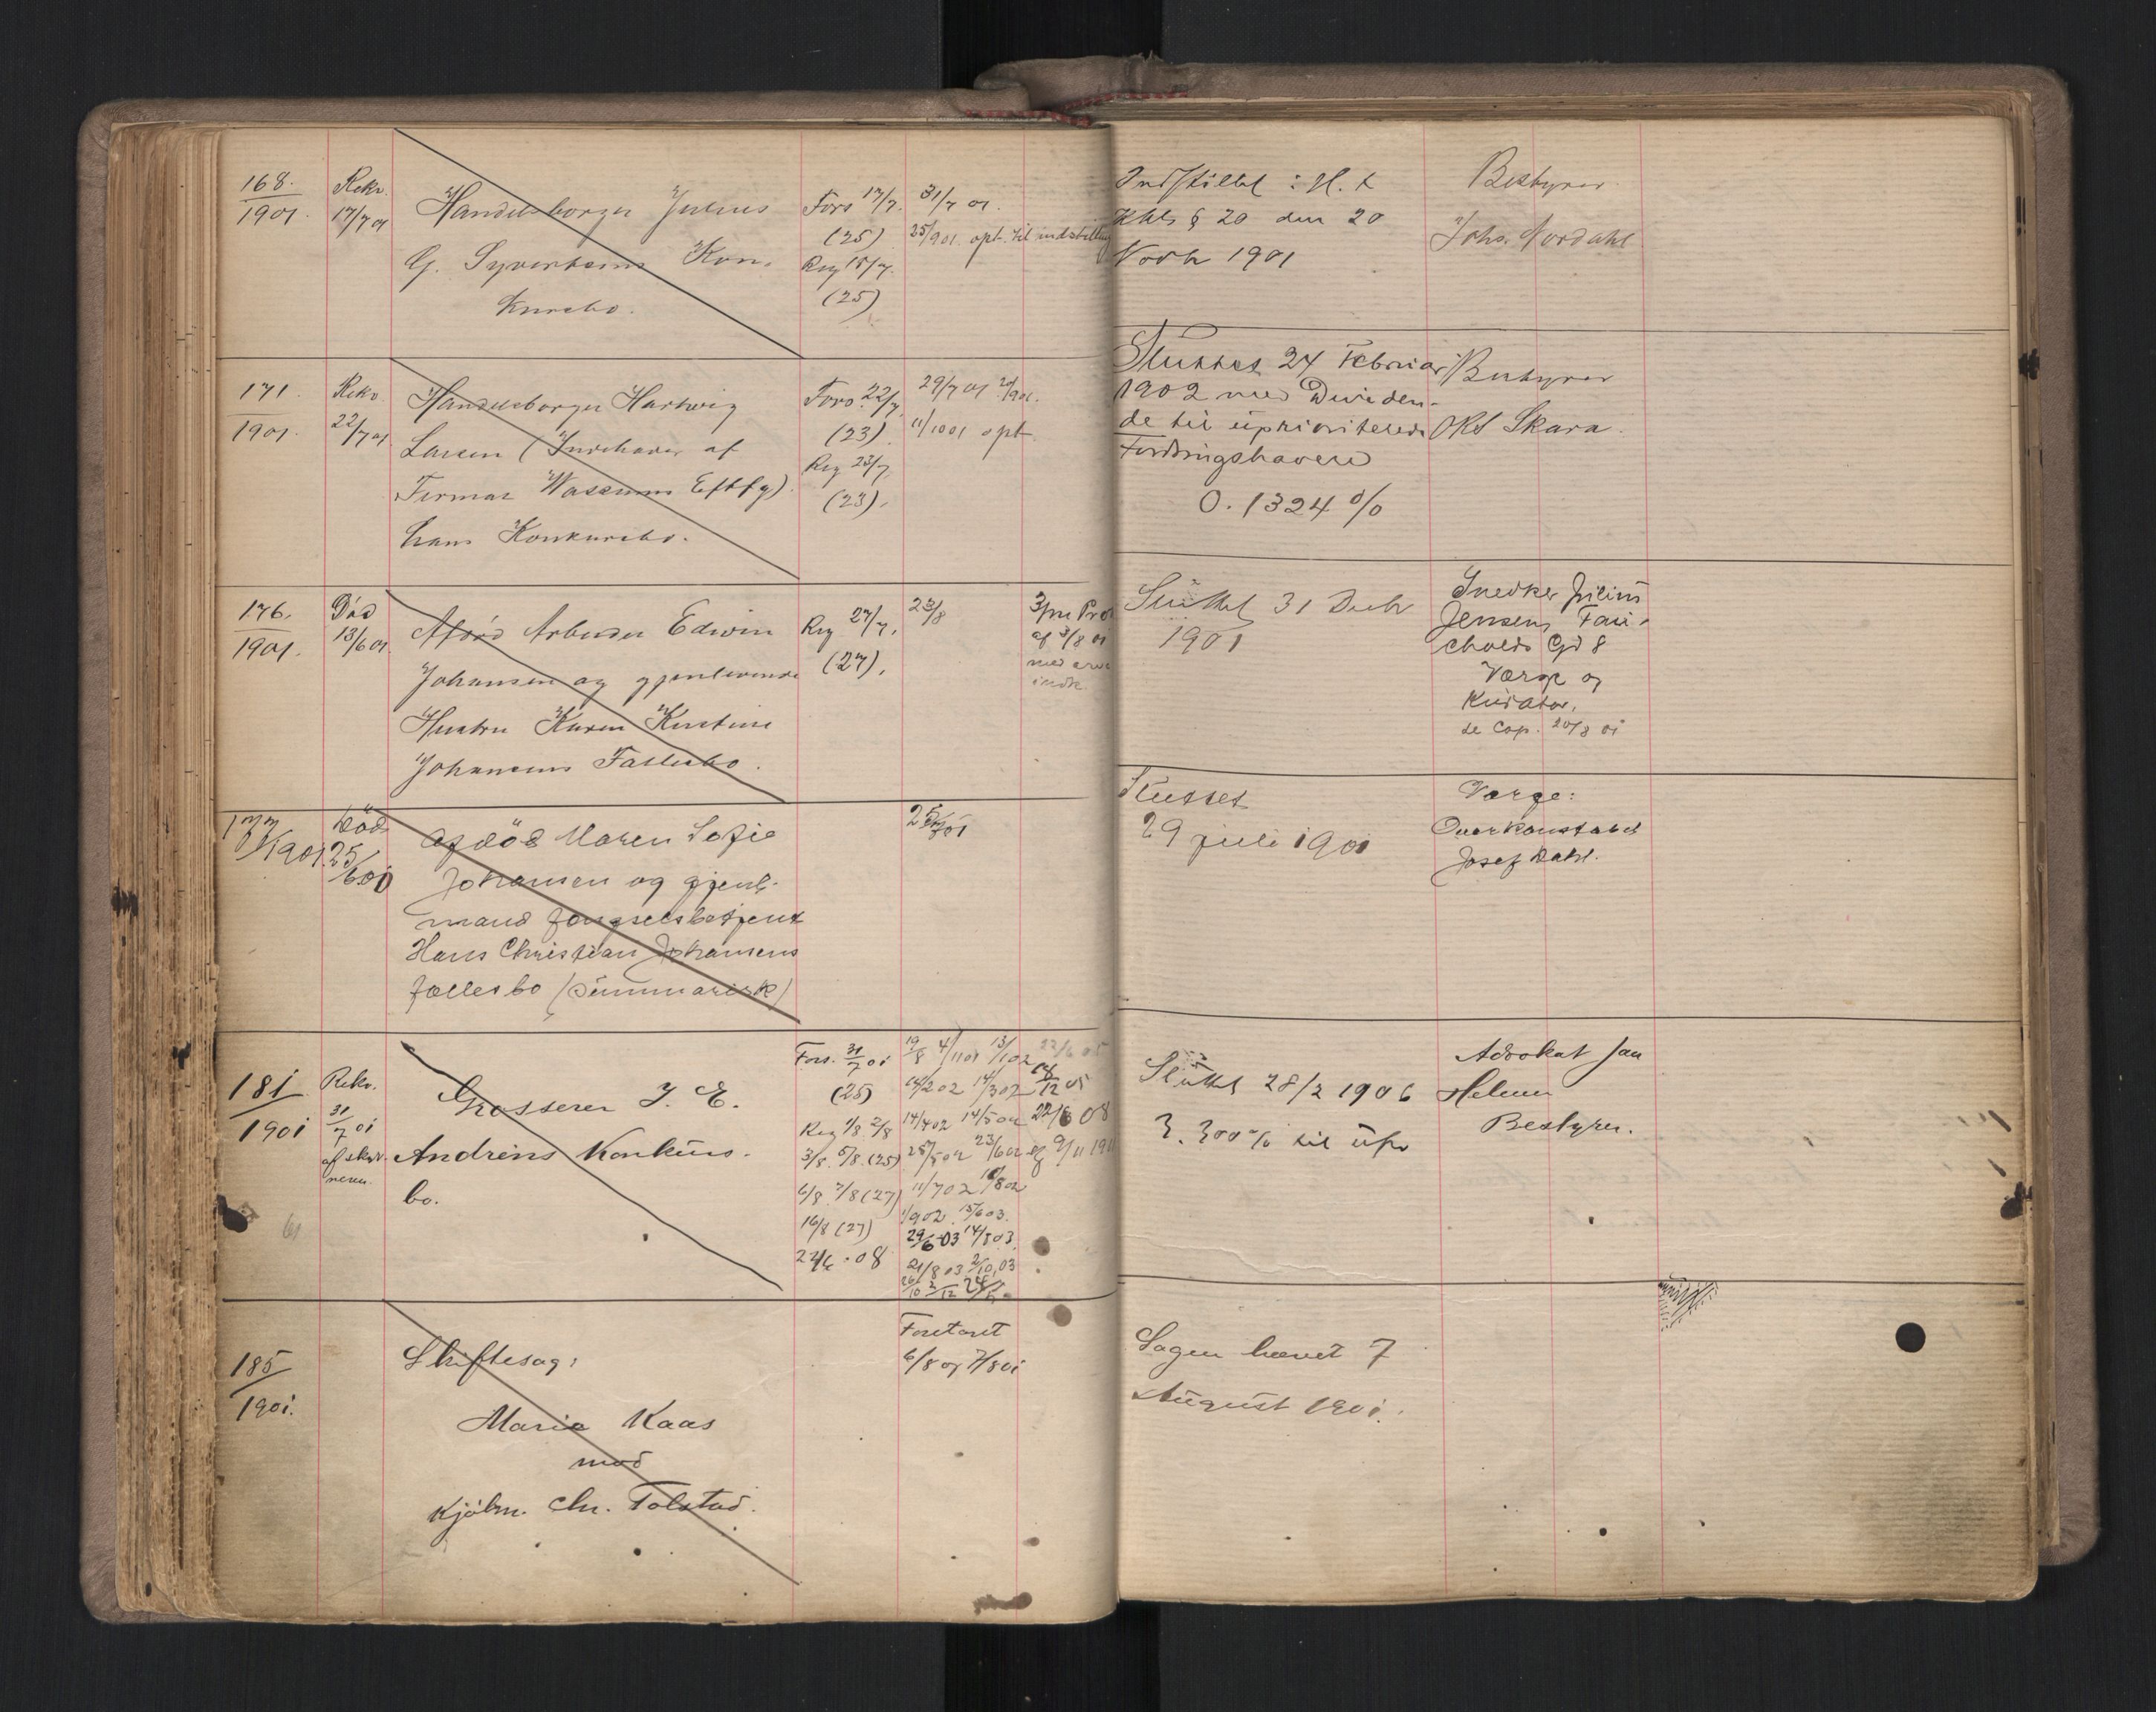 168.
1901.
Rekv.
17/7 01
Handelsborger Julius
G. Syvertsens Kon-
kursbo.
Fors 17/7.
(25)
Reg 18/7.
(25)
31/7 01.
25/9 01. opt. til indstilling
Indstillet i H. t
Kkls § 20 den 20
Novbr 1901
Bestyrer
Johs. Nordahl
171.
1901.
Rekv.
22/7 01
Handelsborger Hartwig
Larsen (Indehaver af
Firmaet Efttfg)
hans Konkursbo.
Fors. 22/7
(23)
Reg 23/7.
(23).
29/7 01
11/10 01 opt
Sluttet 24 Februar
1902 med Dividen-
de til upriviterede
Fordringshavere
0.1324 %
Bestyrer
ORS Skara.
176.
1901.
Död
13/6 01
Afdöd Arbeider Edwin
Johansen og gjenlevende
Hustru Karen Kirstine
Johansens Fællesbo.
Reg 27/7.
(27).
23/8
af 3/8 01
Sluttet 31 Decbr
1901
Snedker Julius
Jensen, Fau-
chalds Gd 8
Værge og
Kurator.
de Cap. 20/8 01
177
1901.
Död
25/6 01
Afdöd Maren Sofie
Johansen og gjenl.
mand fængselsbetjent
Hans Christian Johansens
fællesbo (summarisk)
Sluttet
29 juli 1901
Værge:
Overkonstabel
Josef Dahl.
181
1901
Rekv.
31/7 01
af skyldneren.
Grosserer J. E.
Andréns Konkurs-
bo.
Fors. 31/7 01
(25)
Reg 1/8 2/8
3/8. 5/8. (25)
6/8. 7/8 (27)
16/8 (27)
22/6 - 08
19/8 4/11 01 13/1 02
14/2 02 14/3 02
14/4 02 14/5 02 22/6 08
11/7 02
1/9 02. 15/6 03.
29/6 03 14/8 03.
21/8 03 2/10.03
Sluttet 28/2 1906
3.300 % til upr
Advokat Jan
Helmer
Bestyrer.
185
1901.
Skiftesag:
Marie Kaas
mod
Kjöbm. Chr. Tolstad.
Foretaget
6/8 og 7/8 01
Sagen hævet 7
August 1901.